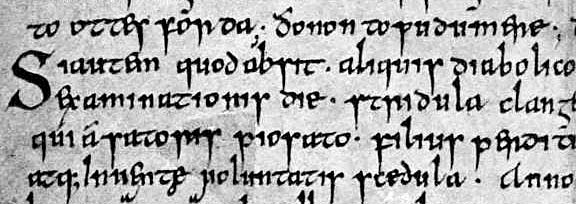 to ottes forda; ðonon to ƿudumere;
Siautem quod absit · aliquis diabolico
examinationis die · stridula clang
qui ā satoris piosato · filius perditi
atq; uoluntatis scedula · Anno